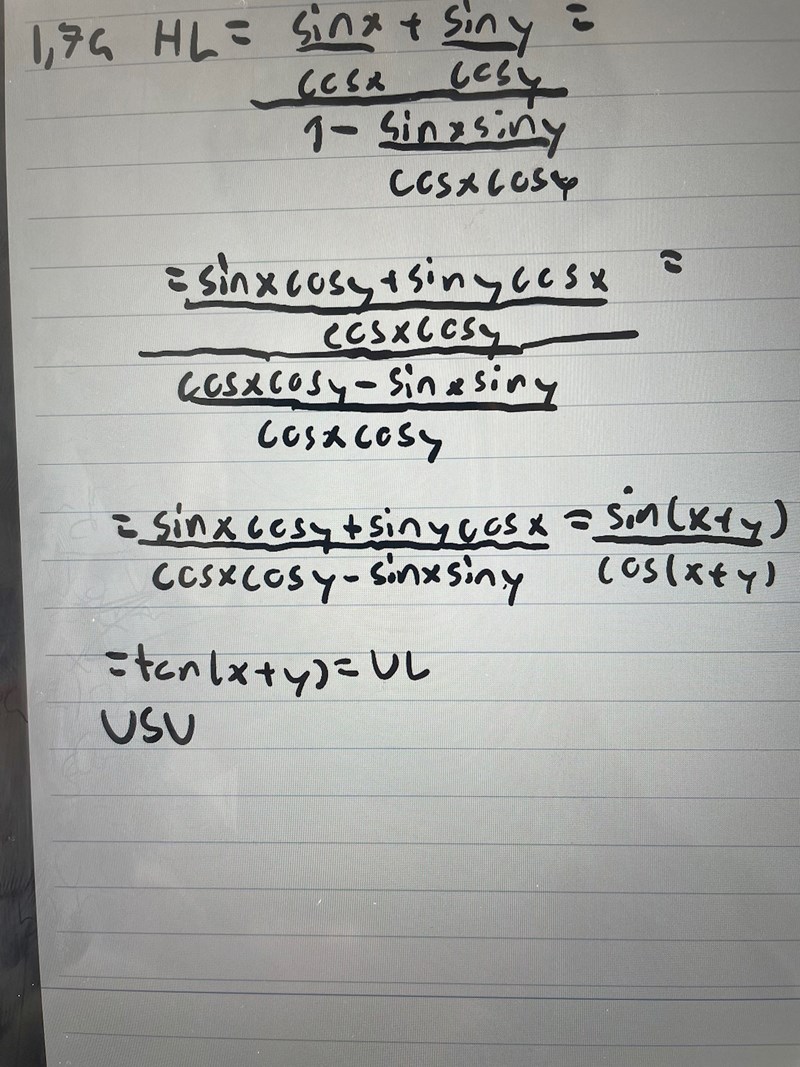 1,7a HL = sinx + siny =
cosx cosy
1 - sinxsiny
cosxcosy
= sinxcosy + sinycosx =
cosxcosy
cosxcosy - sinxsiny
cosxcosy
= sinxcosy + sinycosx = sin(x+y)
cosxcosy - sinxsiny cos(x+y)
= tan(x+y) = VL
VSV